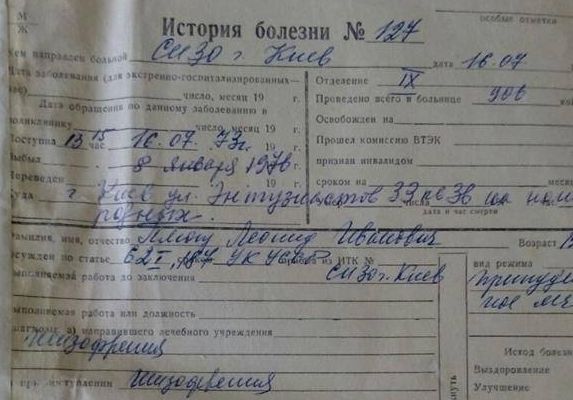 М
Ж
История болезни № 127
особые отметки
Кем направлен больной СИЗО г. Киев дата 16.07
Дата заболевания (для экстренно-госпитализированных—
число, месяц 19 г.
Отделение IX
Дата обращения по данному заболеванию в
Проведено всего в больнице 906
поликлинику число, месяц 19 г.
Освобожден на
Поступил 13 час 15 16.07.73г.
Прошел комиссию ВТЭК
Выбыл 8 января 1976
признан инвалидом
Переведен
сроком на месяц
Куда г. Киев ул. Энтузиастов 33 кв 36
дата и час смерти
родных.
Фамилия, имя, отчество Плющ Леонид Иванович Возраст
осужден по статье 62 I, 187 УК УССР прибыл из ИТК №
выполняемой работа до заключения, СИЗО г. Киев
вид режима
принуде
ное ле
выполняемая работа или должность
Диагнозы: а) направившего лечебного учреждения
Исход болезн
Шизофрения
Выздоровление
при поступлении Шизофрения
Улучшение